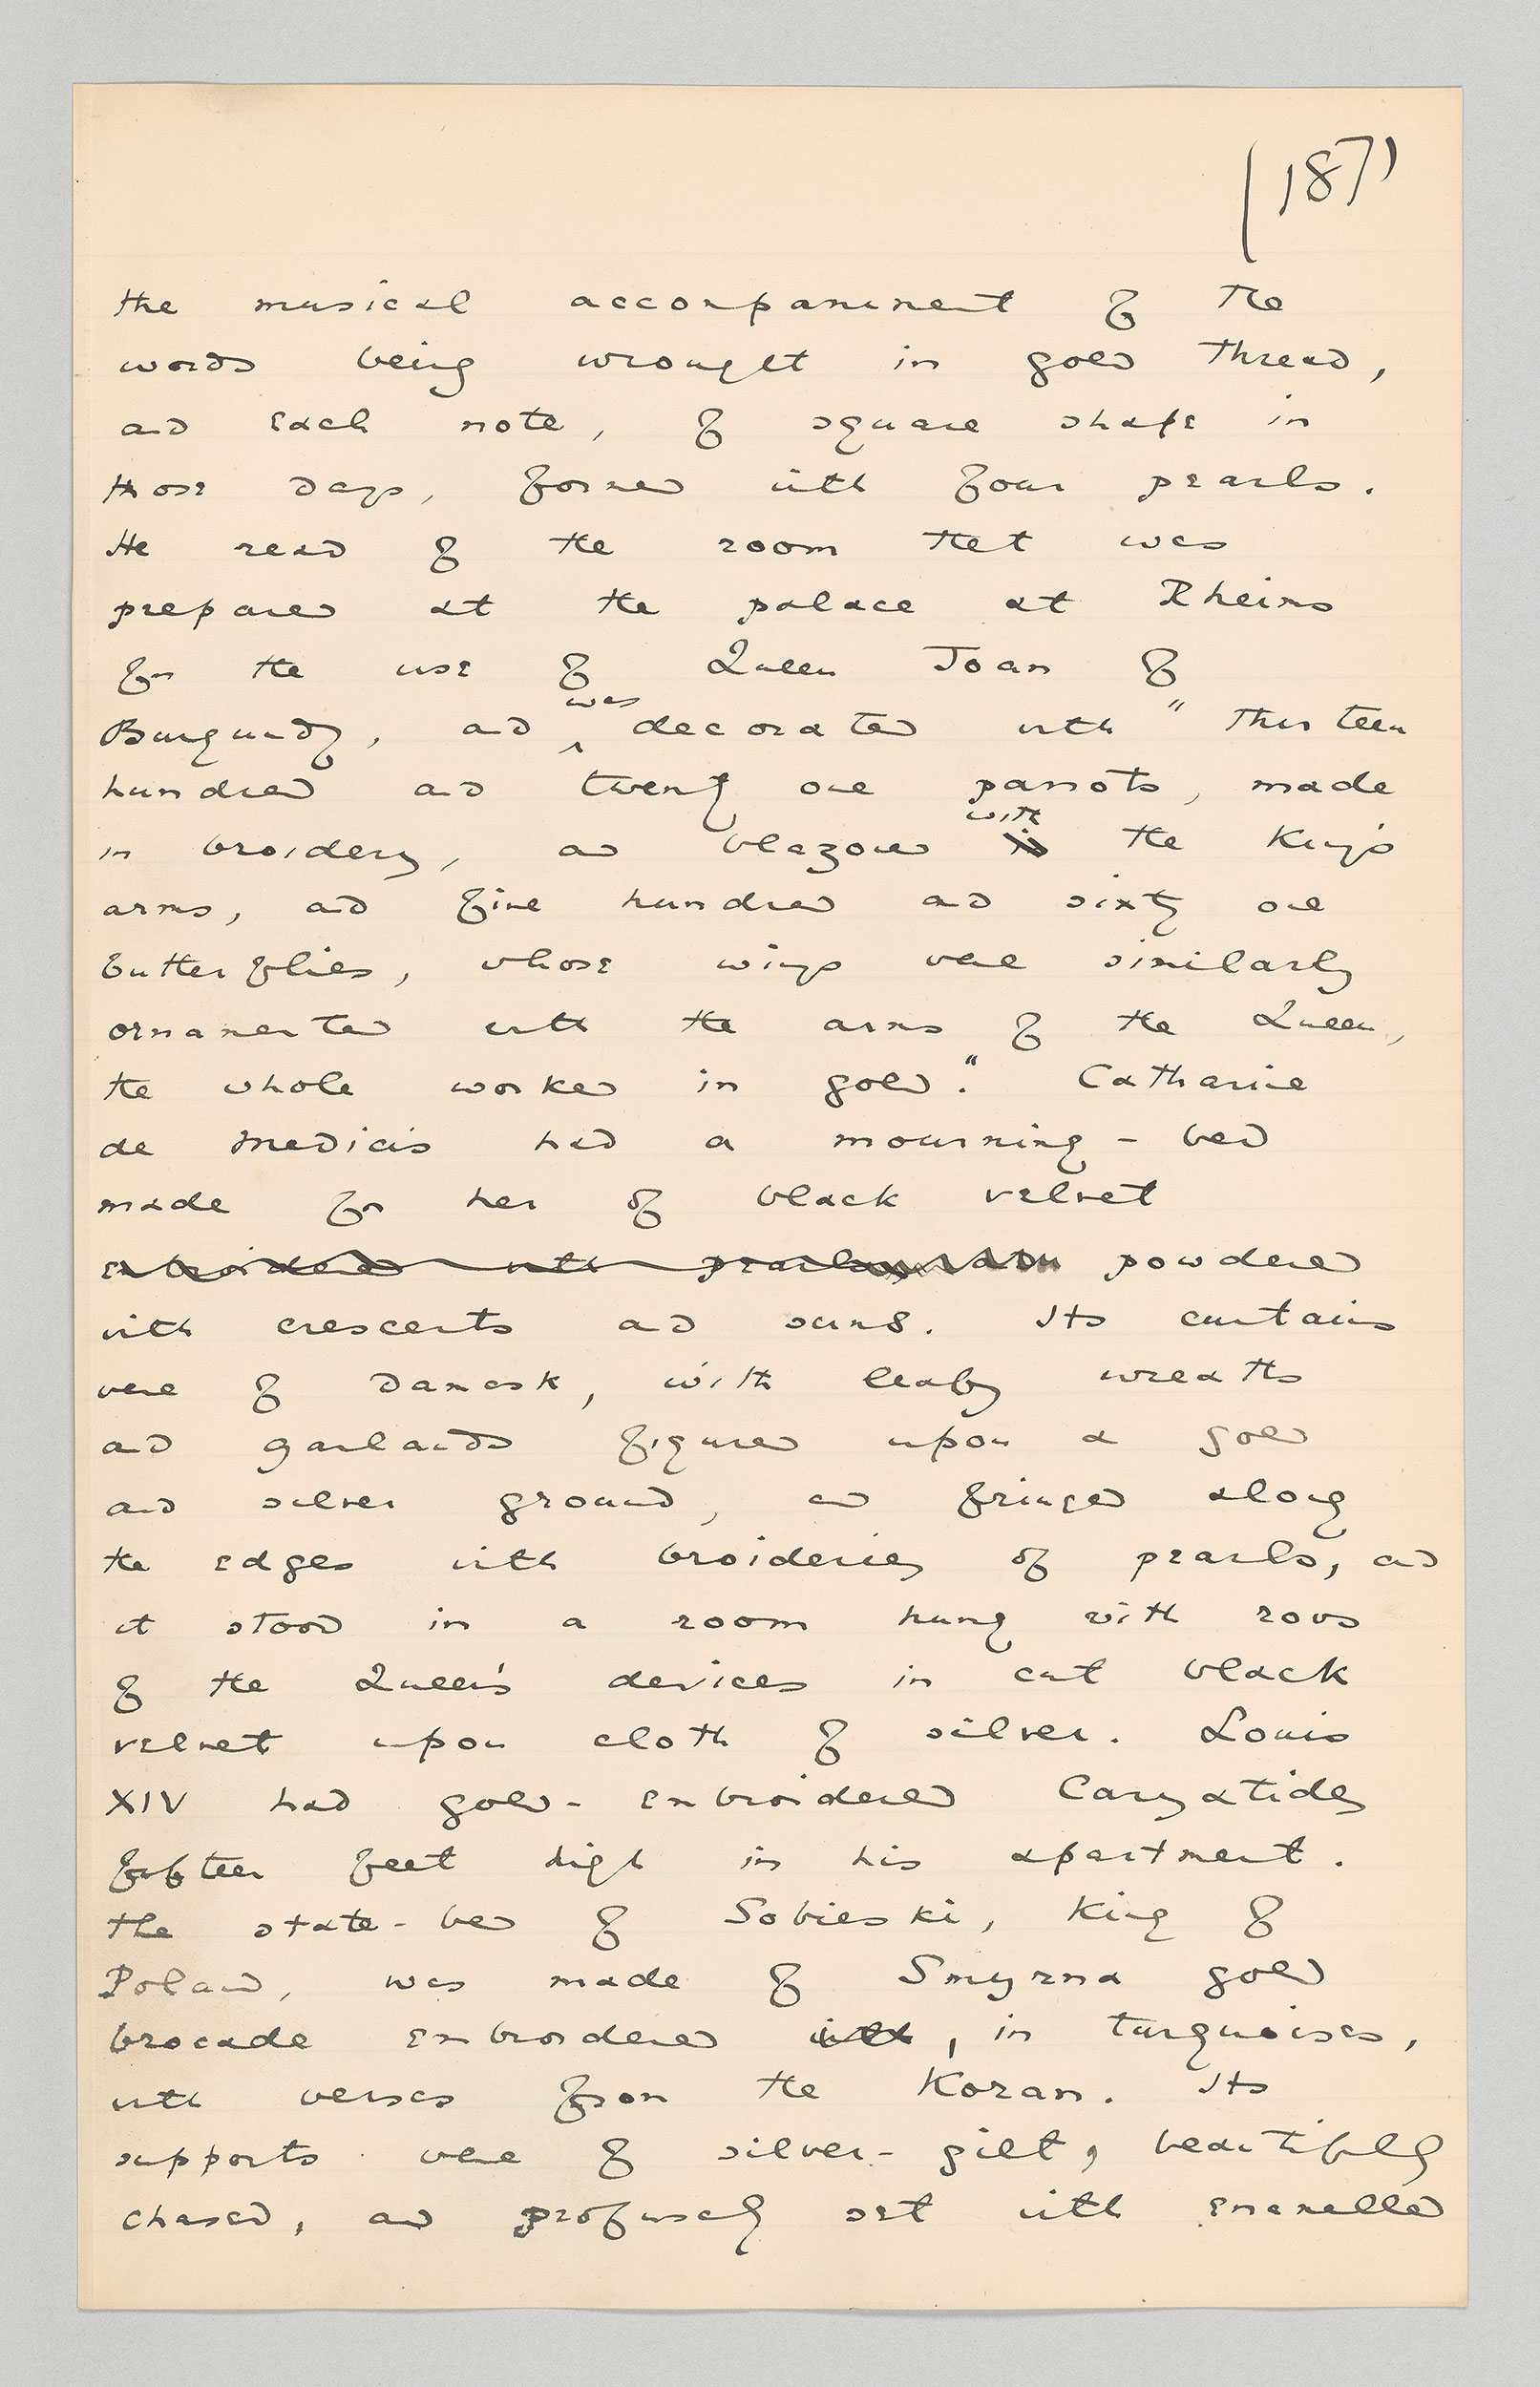 (187)
the musical accompaniment of the
words being wrought in gold thread,
and each note, of square shape in
those days, formed with four pearls.
He read of the room that was
prepared at the palace at Rheims
for the use of Queen Joan of
Burgundy, and was decorated with "thirteen
hundred and twenty one parrots, made
in broidery, and blazoned in with the King's
arms, and five hundred and sixty one
butterflies, whose wings were similarly
ornamented with the arms of the Queen,
the whole worked in gold." Catharine
de Medicis had a mourning-bed
made for her of black velvet
embroidered with pearls powdered
with crescents and suns. Its curtains
were of damask, with leafy wreaths
and garlands figured upon a gold
and silver ground, and fringed along
the edges with broideries of pearls, and
it stood in a room hung with rows
of the Queen's devices in cut black
velvet upon cloth of silver. Louis
XIV had gold-embroidered Caryatides
fifteen feet high in his apartment.
The state-bed of Sobieski, King of
Poland, was made of Smyrna gold
brocade embroidered with, in turquoises,
with verses from the Koran. Its
supports were of silver-gilt, beautifully
chased, and profusely set with enamelled